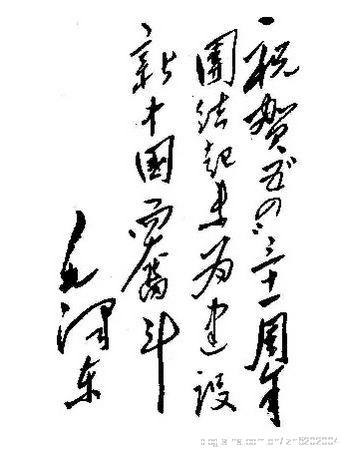 祝贺五四三十一周年
團结起来为建設
新中國而奮斗
毛澤东